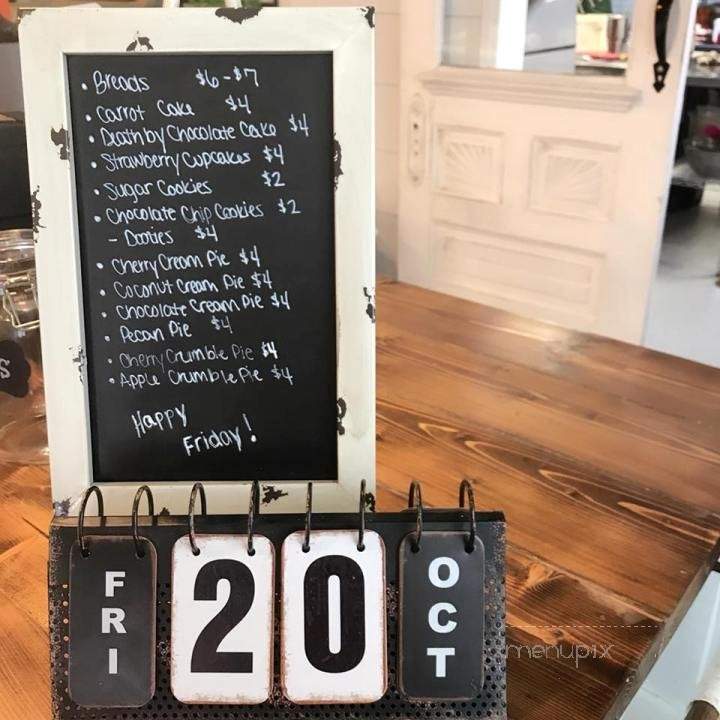 • Breads $6-$7
• Carrot Cake $4
• Death by Chocolate Cake $4
• Strawberry Cupcakes $4
• Sugar Cookies $2
• Chocolate Chip Cookies $2
- Dooties $4
• Cherry Cream Pie $4
• Coconut Cream Pie $4
• Chocolate Cream Pie $4
• Pecan Pie $4
• Cherry Crumble Pie $4
• Apple Crumble Pie $4
Happy
Friday!
FRI 20 OCT
menupix